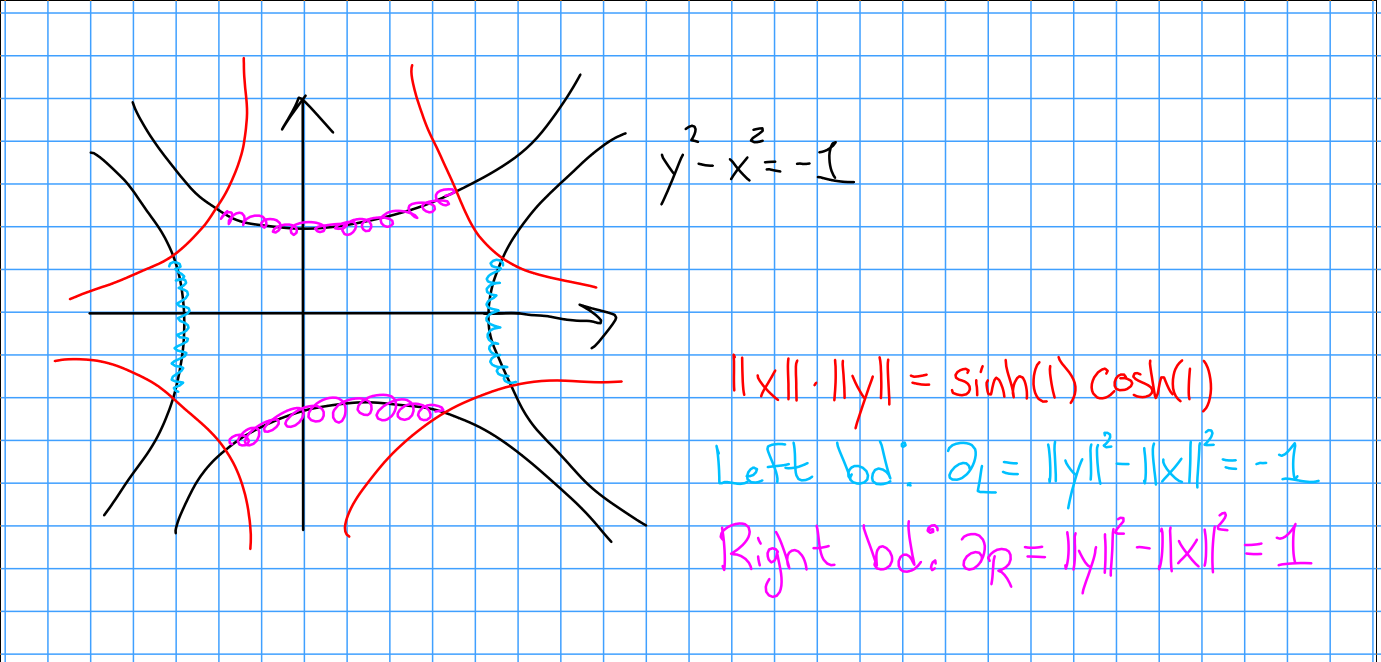 y² - x² = -1
||x|| · ||y|| = sinh(1) cosh(1)
Left bd: ∂L = ||y||² - ||x||² = -1
Right bd: ∂R = ||y||² - ||x||² = 1